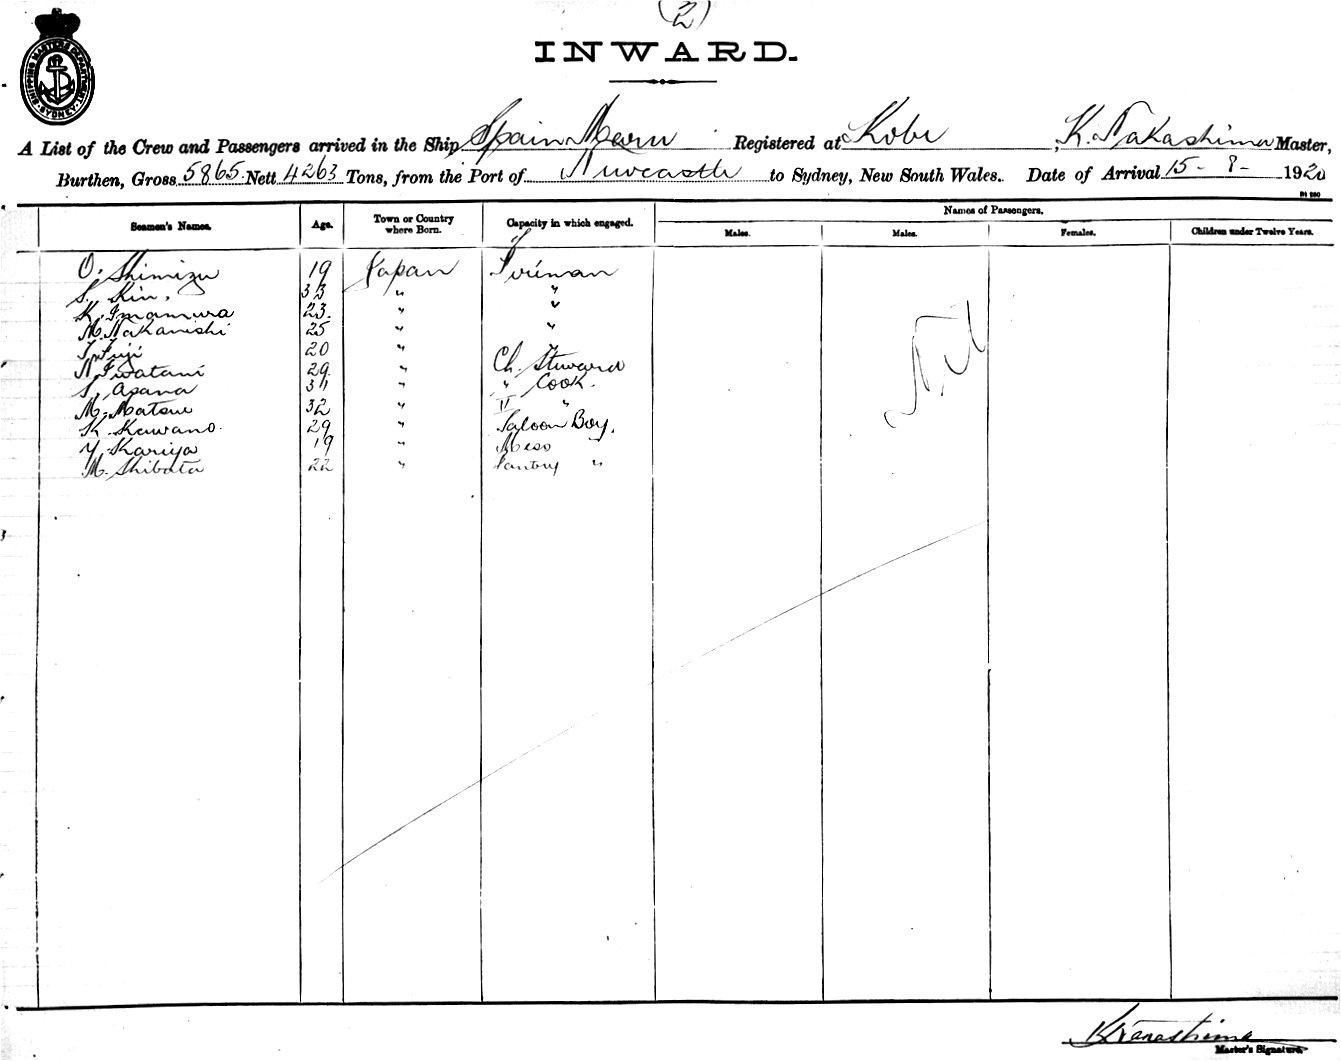 (2)
INWARD.
SHIPPING MASTER'S DEPARTMENT SYDNEY
A List of the Crew and Passengers arrived in the Ship Spain Maru Registered at Kobe , K. Nakashima Master,
Burthen, Gross 5865 Nett 4263 Tons, from the Port of Newcastle to Sydney, New South Wales. Date of Arrival 15 - 8 - 1920
Seamen's Names. Age. Town or Country where Born. Capacity in which engaged. Names of Passengers.
Males. Males. Females. Children under Twelve Years.
O. Shimizu 19 Japan Fireman
S. Kin. 33 " "
K. Imamura 23. " "
M. Nakanishi 25 " "
T. Fuji 20 "
N. Iwatani 29 " Ch. Steward
S. Asana " " Cook.
M. Matsue 32 " II "
K. Kawano. 29 " Saloon Boy.
Y. Kariya 19 " Mess
M. Shibata 22 " Pantry "
Nil
Master's Signature.